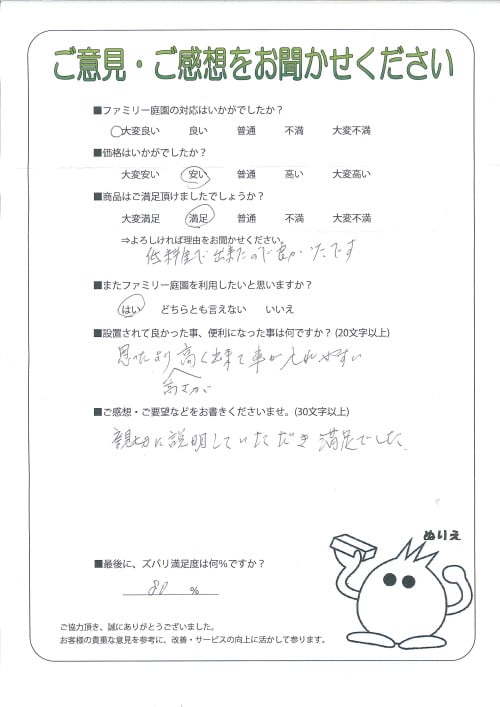 ご意見・ご感想をお聞かせください
■ファミリー庭園の対応はいかがでしたか？
大変良い 良い 普通 不満 大変不満
■価格はいかがでしたか？
大変安い 安い 普通 高い 大変高い
■商品はご満足頂けましたでしょうか？
大変満足 満足 普通 不満 大変不満
⇒よろしければ理由をお聞かせください。
低料金で出来たので良かったです
■またファミリー庭園を利用したいと思いますか？
はい どちらとも言えない いいえ
■設置されて良かった事、便利になった事は何ですか？(20文字以上)
思ったより高く出来て車が入れやすい
高さが
■ご感想・ご要望などをお書きくださいませ。(30文字以上)
親切に説明していただき満足でした。
ぬりえ
■最後に、ズバリ満足度は何％ですか？
80 ％
ご協力頂き、誠にありがとうございました。
お客様の貴重な意見を参考に、改善・サービスの向上に活かして参ります。